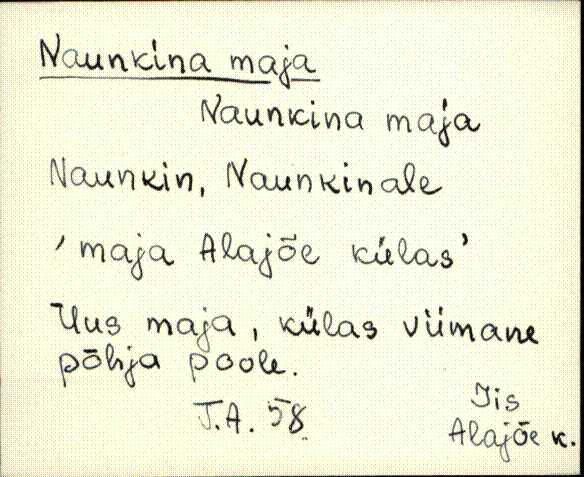 Naunkina maja
Naunkina maja
Naunkin, Naunkinale
'maja Alajõe külas'
Uus maja, külas viimane
põhja poole.
J.A. 58
Iis
Alajõe k.